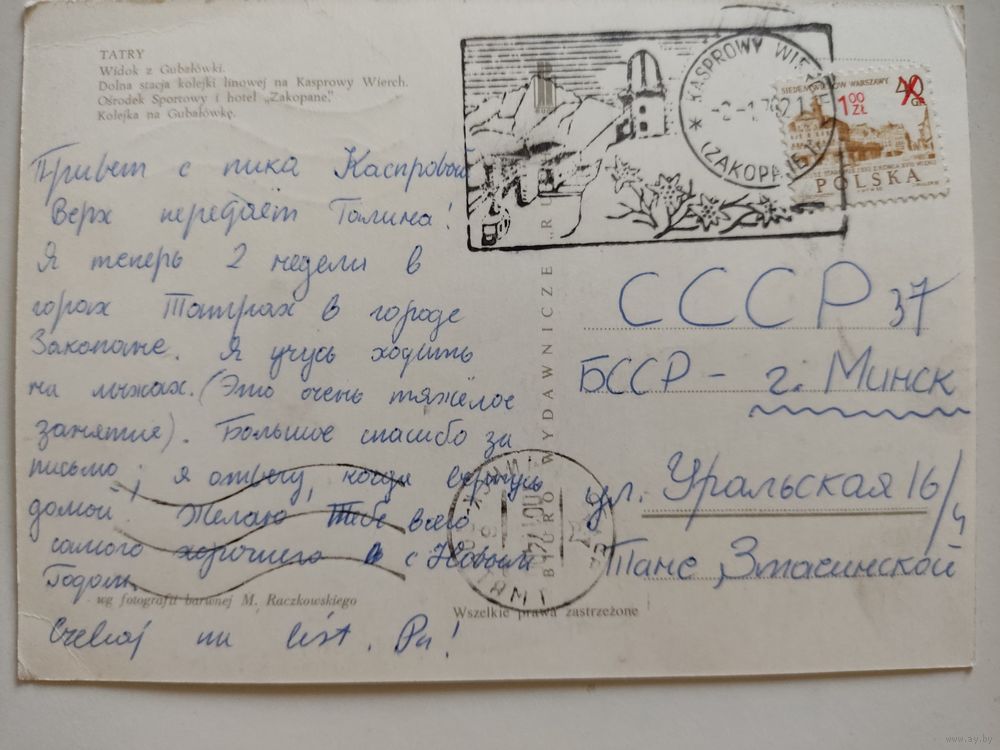 TATRY
Widok z Gubałówki.
Dolna stacja kolejki linowej na Kasprowy Wierch.
Ośrodek Sportowy i hotel „Zakopane".
Kolejka na Gubałówkę.
Привет с пика Каспровый
Верх передаёт Галина!
Я теперь 2 недели в
горах Татрах в городе
Закопане. Я учусь ходить
на лыжах. (Это очень тяжёлое
занятие). Большое спасибо за
письмо; я отвечу, когда вернусь
домой. Желаю Тебе всего
самого хорошего с Новым
Годом.
wg fotografii barwnej M. Raczkowskiego
Czekaj na list. Pa!
KASPROWY WIERCH
(ZAKOPANE)
SIEDEM WIEKÓW WARSZAWY
40 GR
1 00 ZŁ
POLSKA
BIURO WYDAWNICZE „R
СССР 37
БССР - г. Минск
ул. Уральская 16/4
Тане
Wszelkie prawa zastrzeżone
www.ay.by